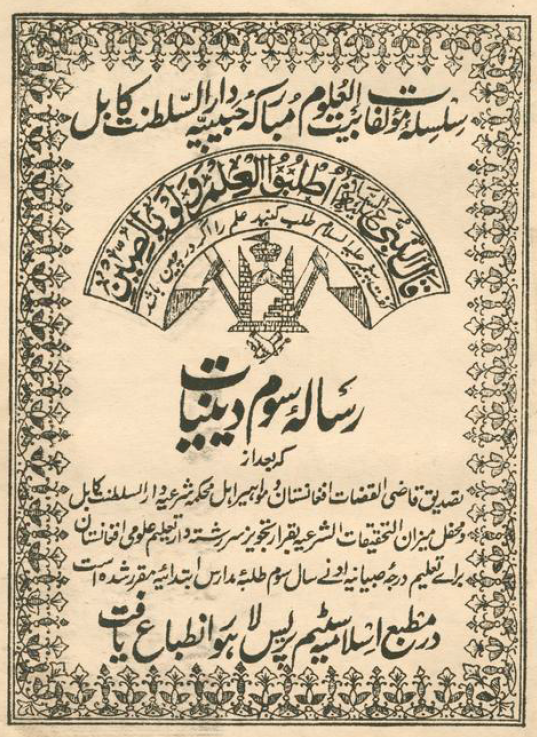 سلسلهٔ مؤلفات بیت العلوم مبارکهٔ حبیبیه دار السلطنت کابل
قال النبی علیه السلام اطلبوا العلم ولو بالصین
گفت پیغمبر علیه السلام طلب کنید علم را اگر در چین باشد
رسالهٔ سوم دینیات
که بعد از
تصدیق قاضی القضات افغانستان و مواهیر اهل محکمه شرعیه دار السلطنت کابل
و محفل میزان التحقیقات الشرعیه بقرار تجویز سررشته دار تعلیم علومی افغانستان
برای تعلیم درجهٔ صبیانیه ادنی سال سوم طلبهٔ مدارس ابتدائیه مقرر شده است
در مطبع اسلامیه سٹیم پریس لاہور انطباع یافت